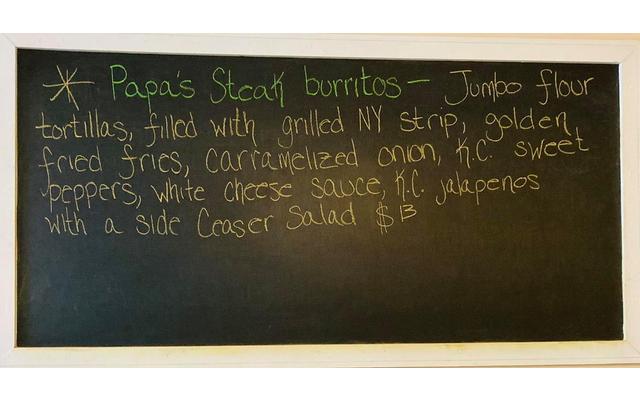 * Papa's Steak burritos - Jumbo flour
tortillas, filled with grilled NY strip, golden
fried fries, carramelized onion, K.C. sweet
peppers, white cheese sauce, K.C. jalapenos
with a side Ceaser Salad $13